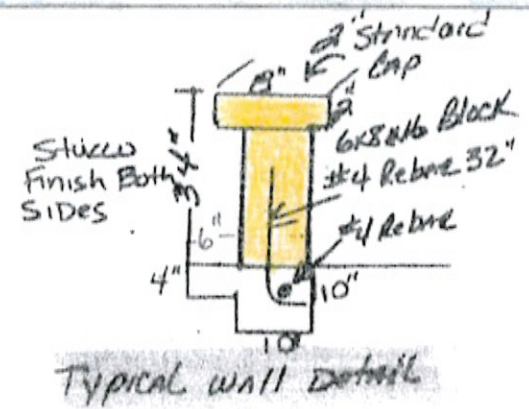 2" Standard
Cap
8"
2"
6x8x16 Block
#4 Rebar 32"
#4 Rebar
Stucco
Finish Both
SIDES
34"
6"
4"
10"
10"
Typical wall Detail